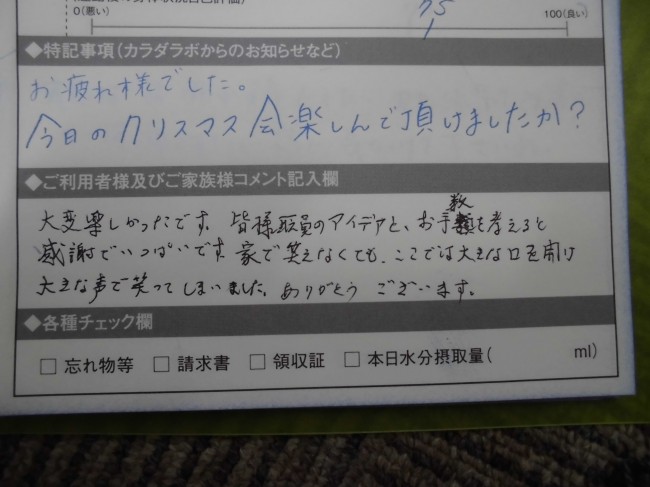 0(悪い)
75
100(良い)
◆特記事項(カラダラボからのお知らせなど)
お疲れ様でした。
今日のクリスマス会楽しんで頂けましたか?
◆ご利用者様及びご家族様コメント記入欄
大変楽しかったです。皆様職員のアイデアと、お手数を考えると
感謝でいっぱいです。家で笑えなくても、ここでは大きな口を開け
大きな声で笑ってしまいました。ありがとう ございます。
◆各種チェック欄
□ 忘れ物等 □ 請求書 □ 領収証 □ 本日水分摂取量( ml)